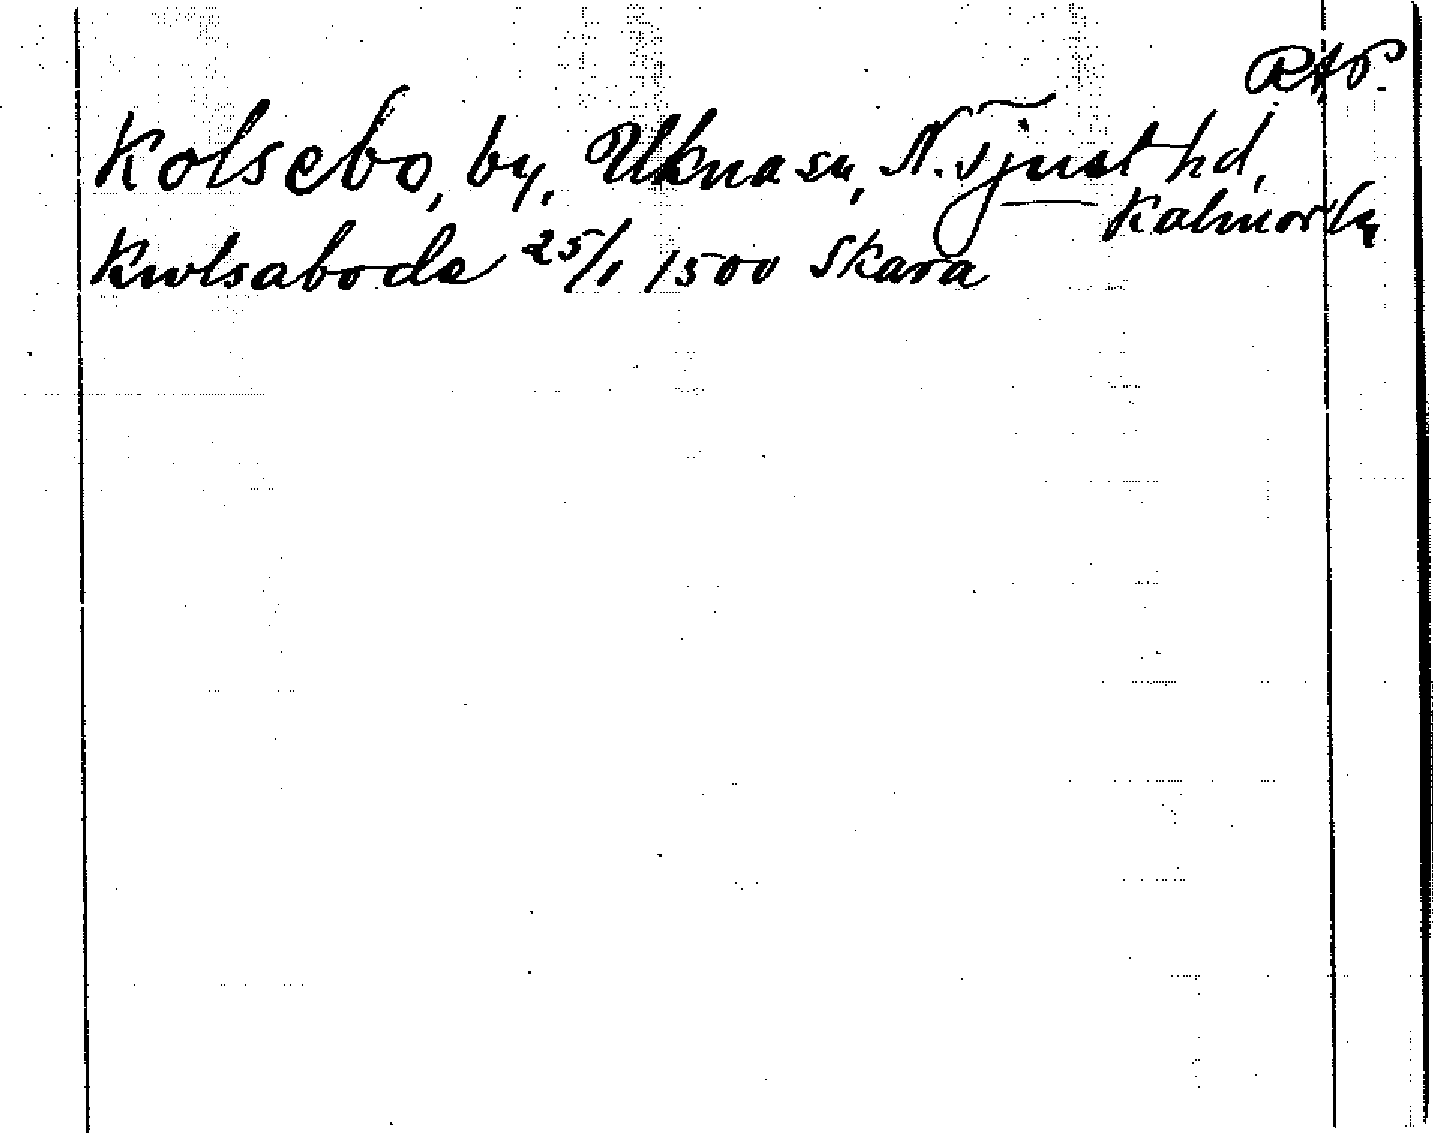 RAP.
Kolsebo, by, Ukna sn, N. Tjust hd,
Kalmar län
Kwlsabode 25/1 1500 Skara